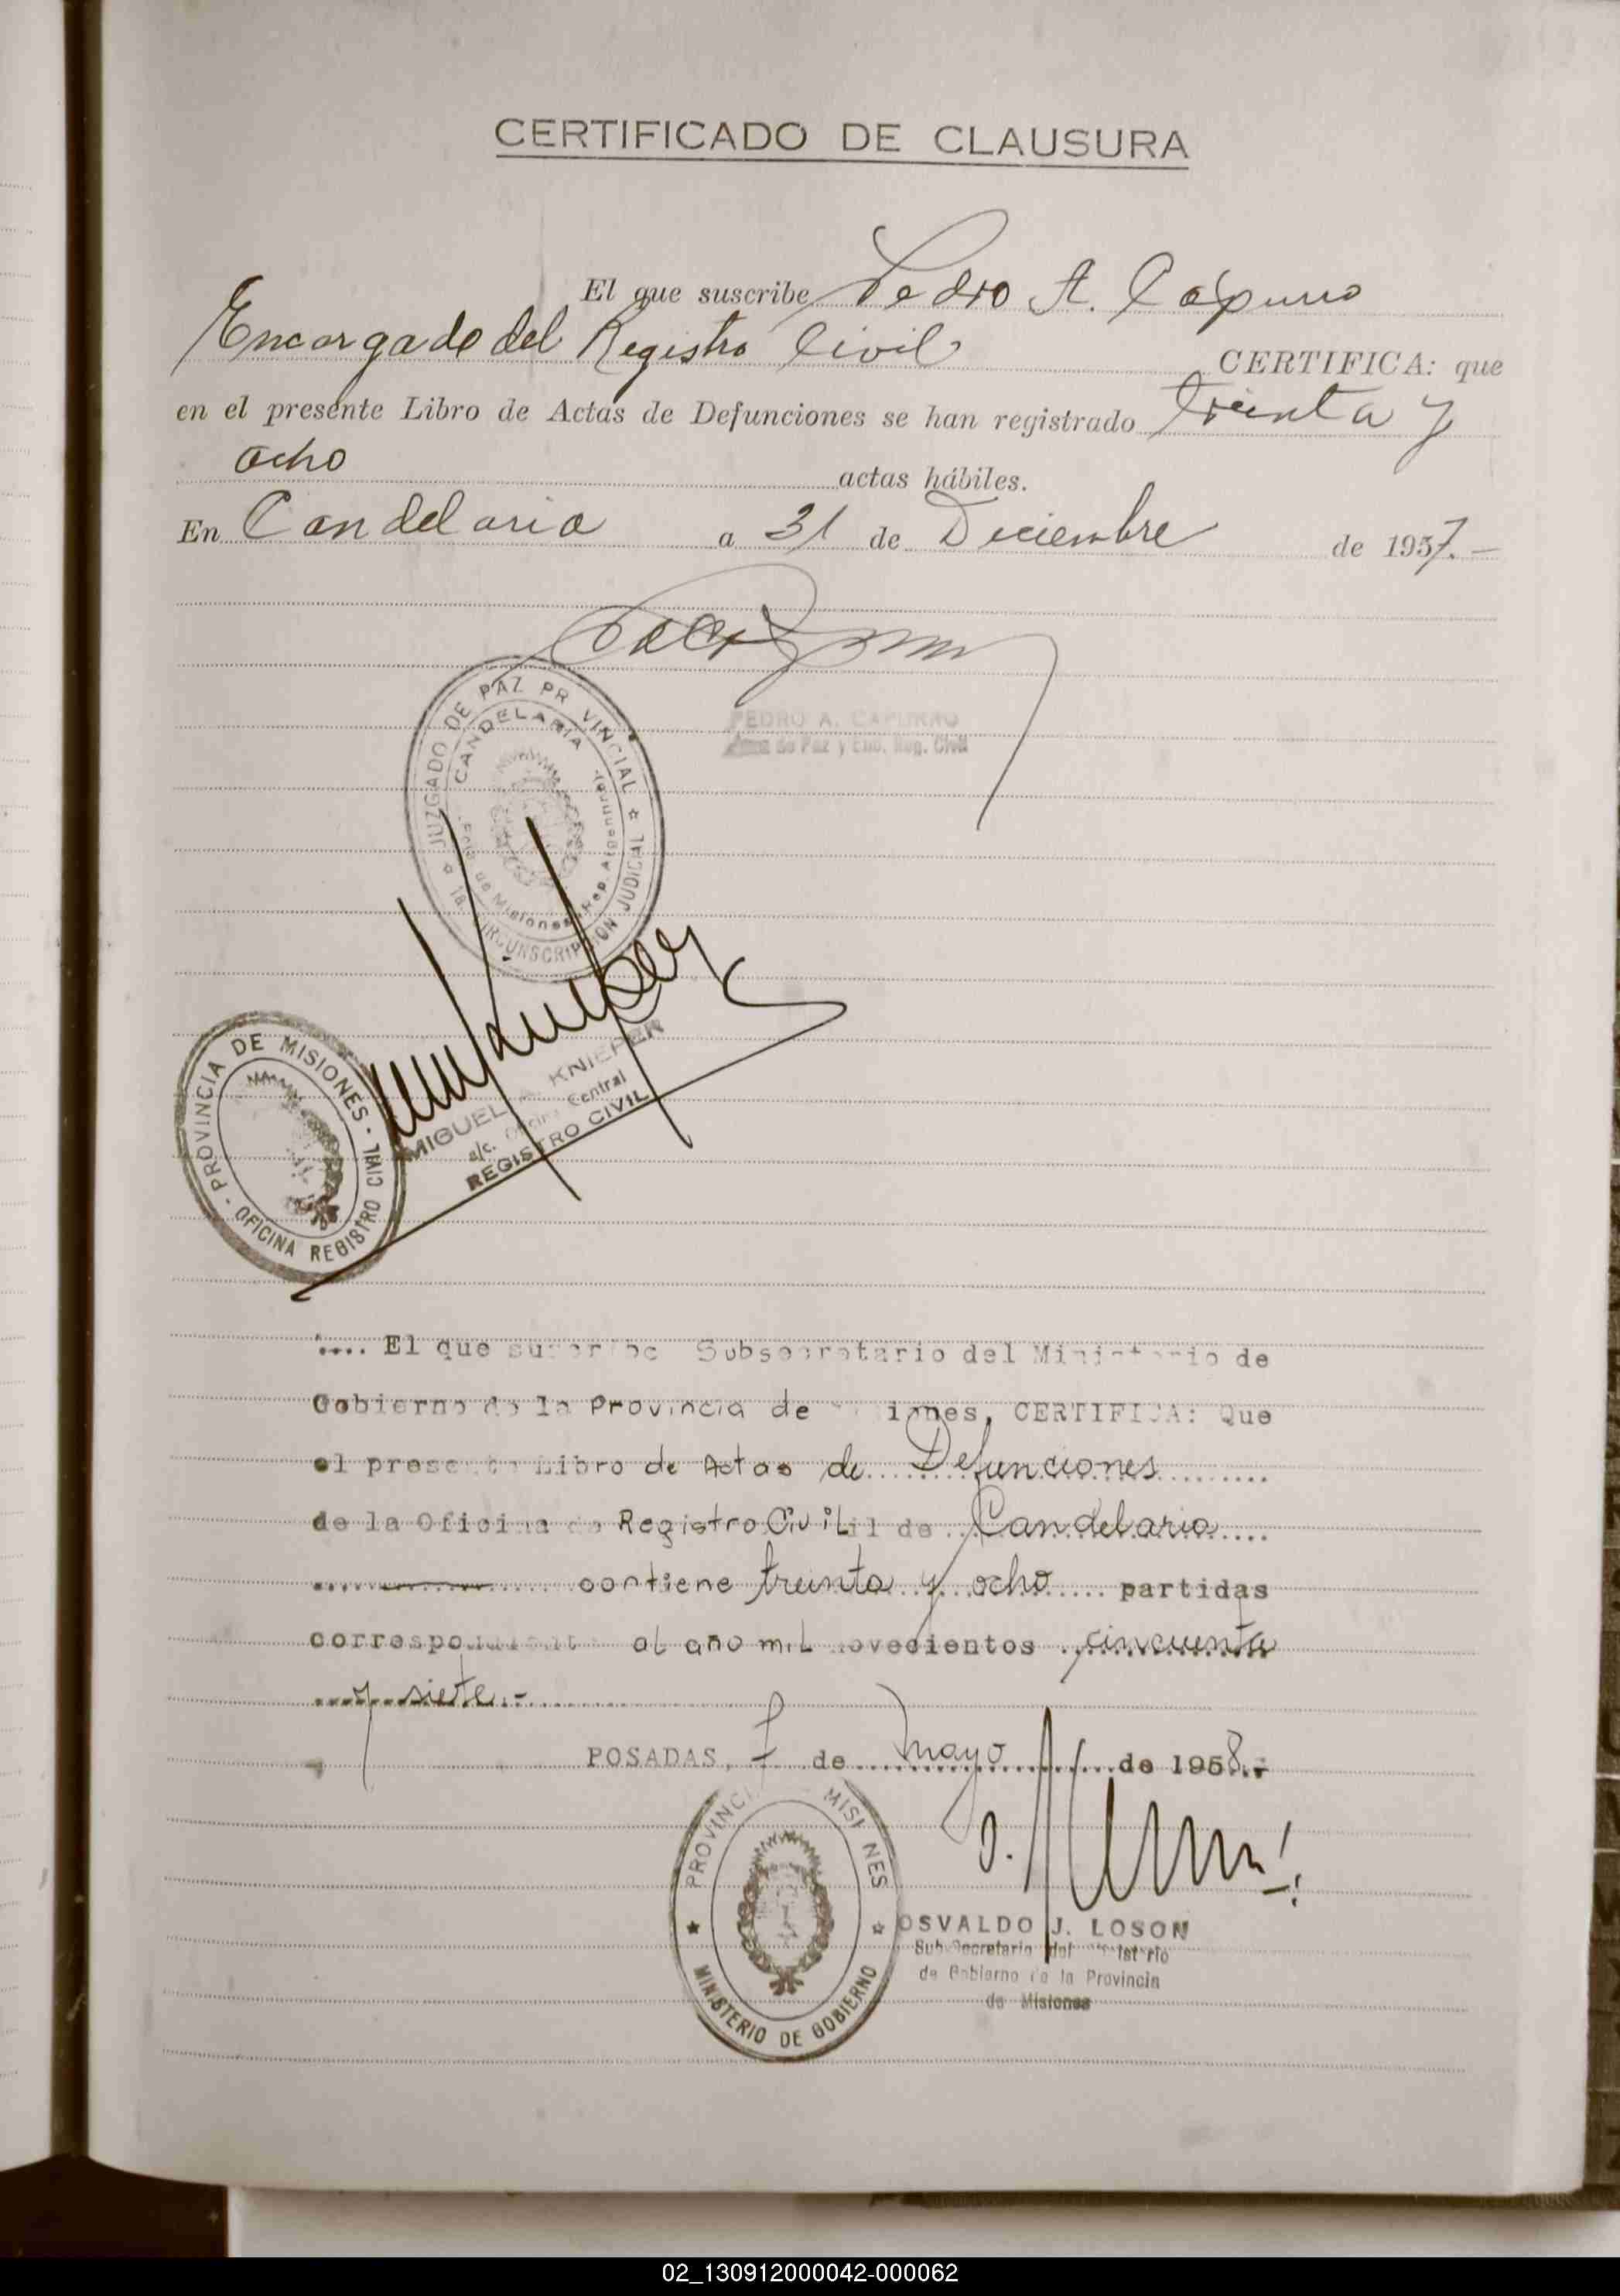 CERTIFICADO DE CLAUSURA
El que suscribe Pedro A. Capurro
Encargado del Registro Civil CERTIFICA: que
en el presente Libro de Actas de Defunciones se han registrado treinta y
ocho actas hábiles.
En Candelaria a 31 de Diciembre de 1957.—
PEDRO A. CAPURRO
de Paz y Enc. Reg. Civil
JUZGADO DE PAZ PR VINCIAL
1a. CIRCUNSCRIPCION JUDICIAL
CANDELARIA
de Misiones Rep. Argentina
PROVINCIA DE MISIONES
OFICINA REGISTRO CIVIL
MIGUEL A. KNIEPER
a/c. Oficina Central
REGISTRO CIVIL
.... El que suscribe Subsecretario del Ministerio de
Gobierno de la Provincia de Misiones, CERTIFICA: Que
el presente Libro de Actas de Defunciones
de la Oficina de Registro Civil de Candelaria
contiene treinta y ocho partidas
correspondiente al año mil novecientos cincuenta
y siete.-
POSADAS, de mayo de 1958.-
PROVINCI MISI NES
MINISTERIO DE GOBIERNO
OSVALDO J. LOSON
Sub Secretario del Ministerio
de Gobierno de la Provincia
de Misiones
02_130912000042-000062